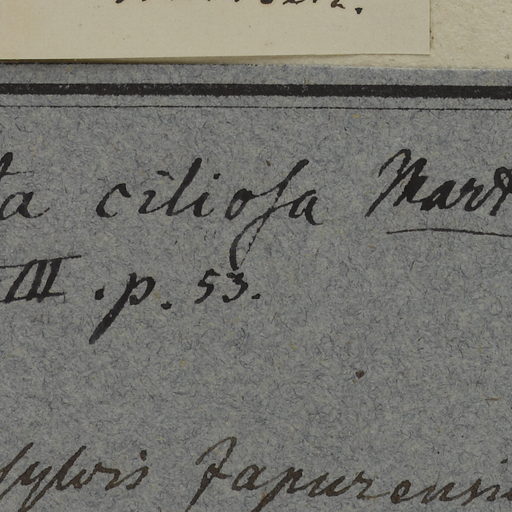 ta ciliosa Mart
III . p. 53.
sylvis Japurensi